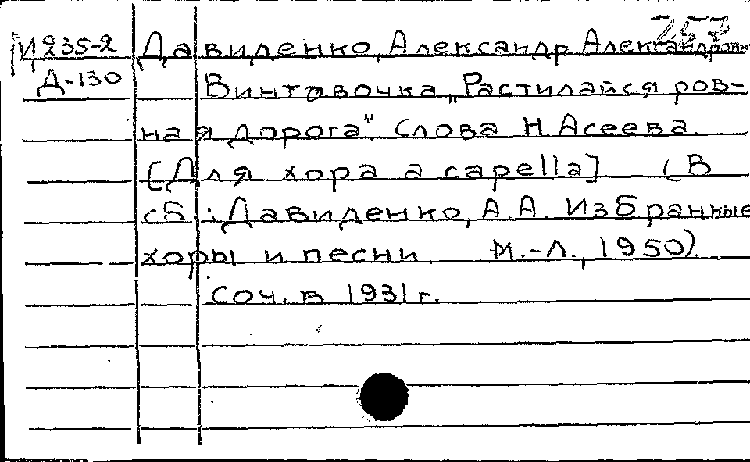 253
М235-2 Давиденко, Александр Александрович
Д-130 Винтовочка „Растилайся ров-
ная дорога". Слова Н. Асеева.
[Для хора a capella] (В
сб.: Давиденко, А.А. Избранные
хоры и песни. М.-Л., 1950)
Соч. в 1931 г.